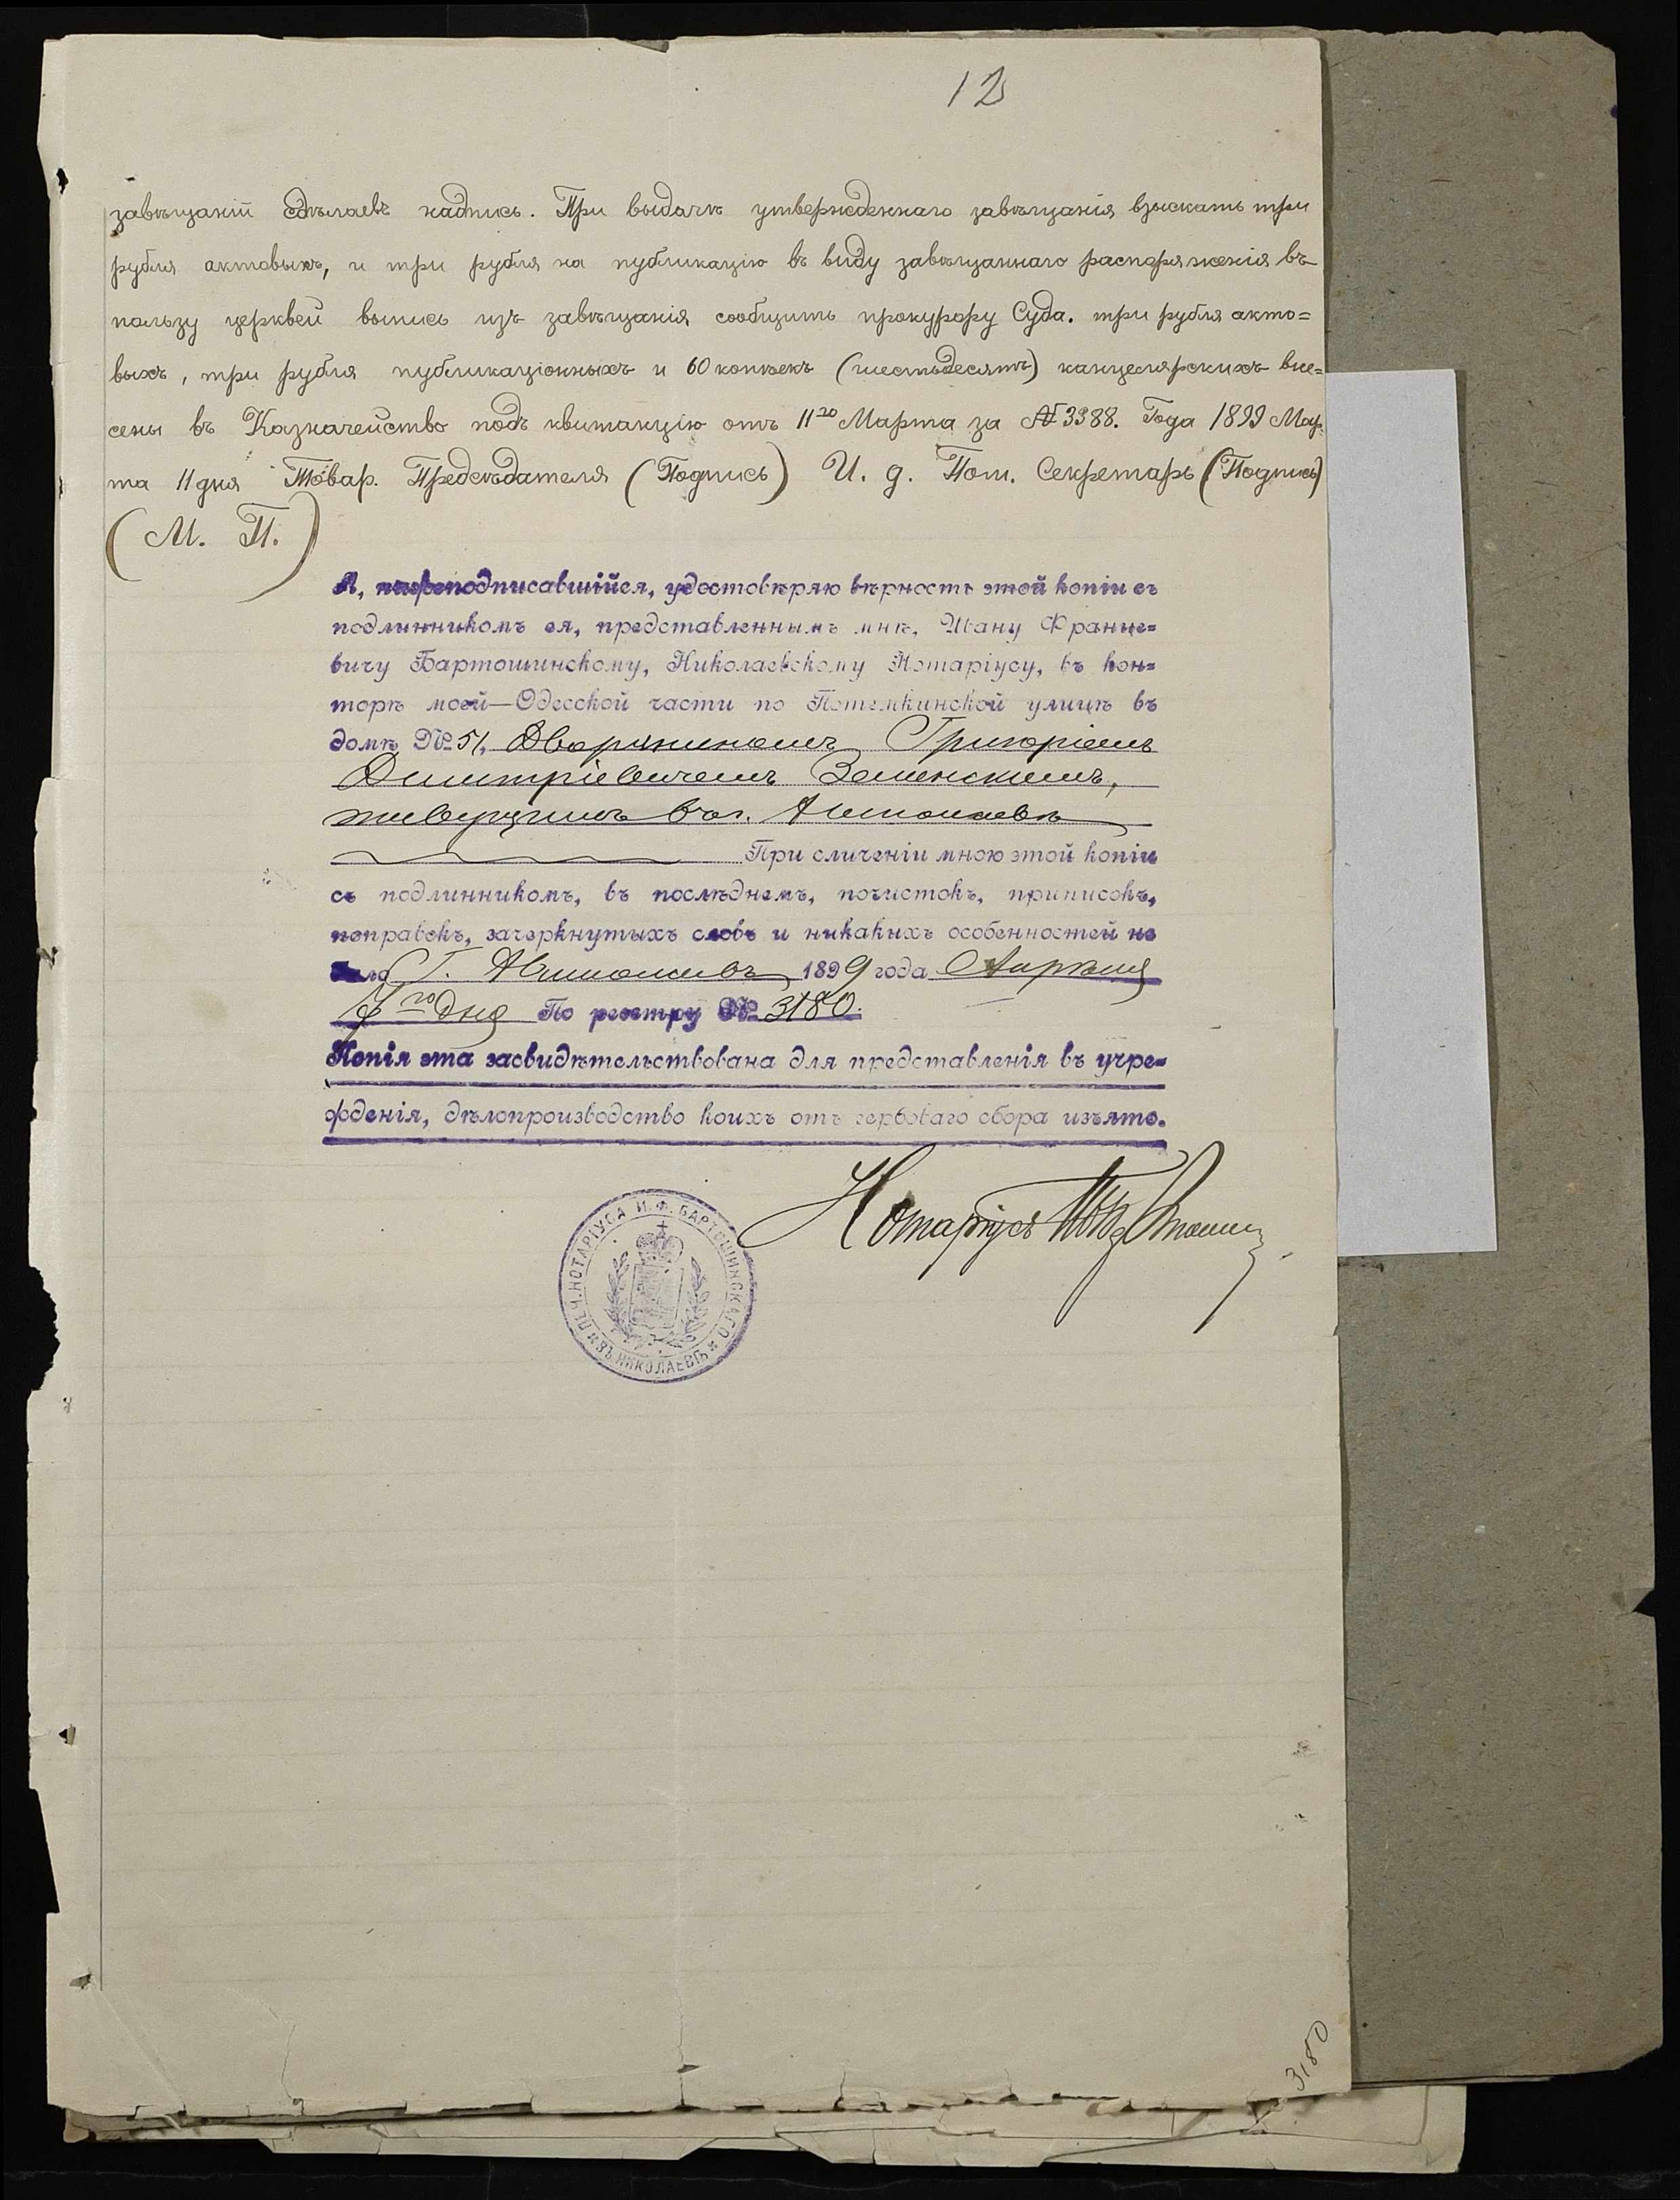 12
завѣщаніи сдѣлаевъ надпись. При выдачѣ утвержденнаго завѣщанія взыскать три
рубля актовыхъ, и три рубля на публикацію въ виду завѣщаннаго распоряженія въ
пользу церквей выпись изъ завѣщанія сообщить прокурору Суда. три рубля акто=
выхъ, три рубля публикаціонныхъ и 60 копѣекъ (шестьдесятъ) канцелярскихъ вне=
сены въ Казначейство подъ квитанцію отъ 11го Марта за № 3388. Года 1899 Мар-
та 11 дня Товар. Предсѣдателя (Подпись) И. д. Пом. Секретарь (Подпись)
(М. П.)
Я, нижеподписавшійся, удостовѣряю вѣрность этой копіи съ
подлинникомъ ея, представленнымъ мнѣ, Ивану Францe=
вичу Бартошинскому, Николаевскому Нотаріусу, въ кон=
торѣ моей—Одесской части по Потемкинской улицѣ въ
домѣ № 51, Дворяниномъ Григоріемъ
Димитріевичемъ
живущимъ въ г. Николаевѣ
При сличеніи мною этой копіи
съ подлинникомъ, въ послѣднемъ, почистокъ, приписокъ,
поправокъ, зачеркнутыхъ словъ и никакихъ особенностей не
Г. Николаевъ, 1899 года Апрѣля
7го дня По реестру № 3180.
Копія эта засвидѣтельствована для представленія въ учре=
жденія, дѣлопроизводство коихъ отъ гербоваго сбора изъято.
Нотаріусъ
ПЕЧ. НОТАРІУСА И. Ф. БАРТОШИНСКАГО * ВЪ НИКОЛАЕВѢ *
3180